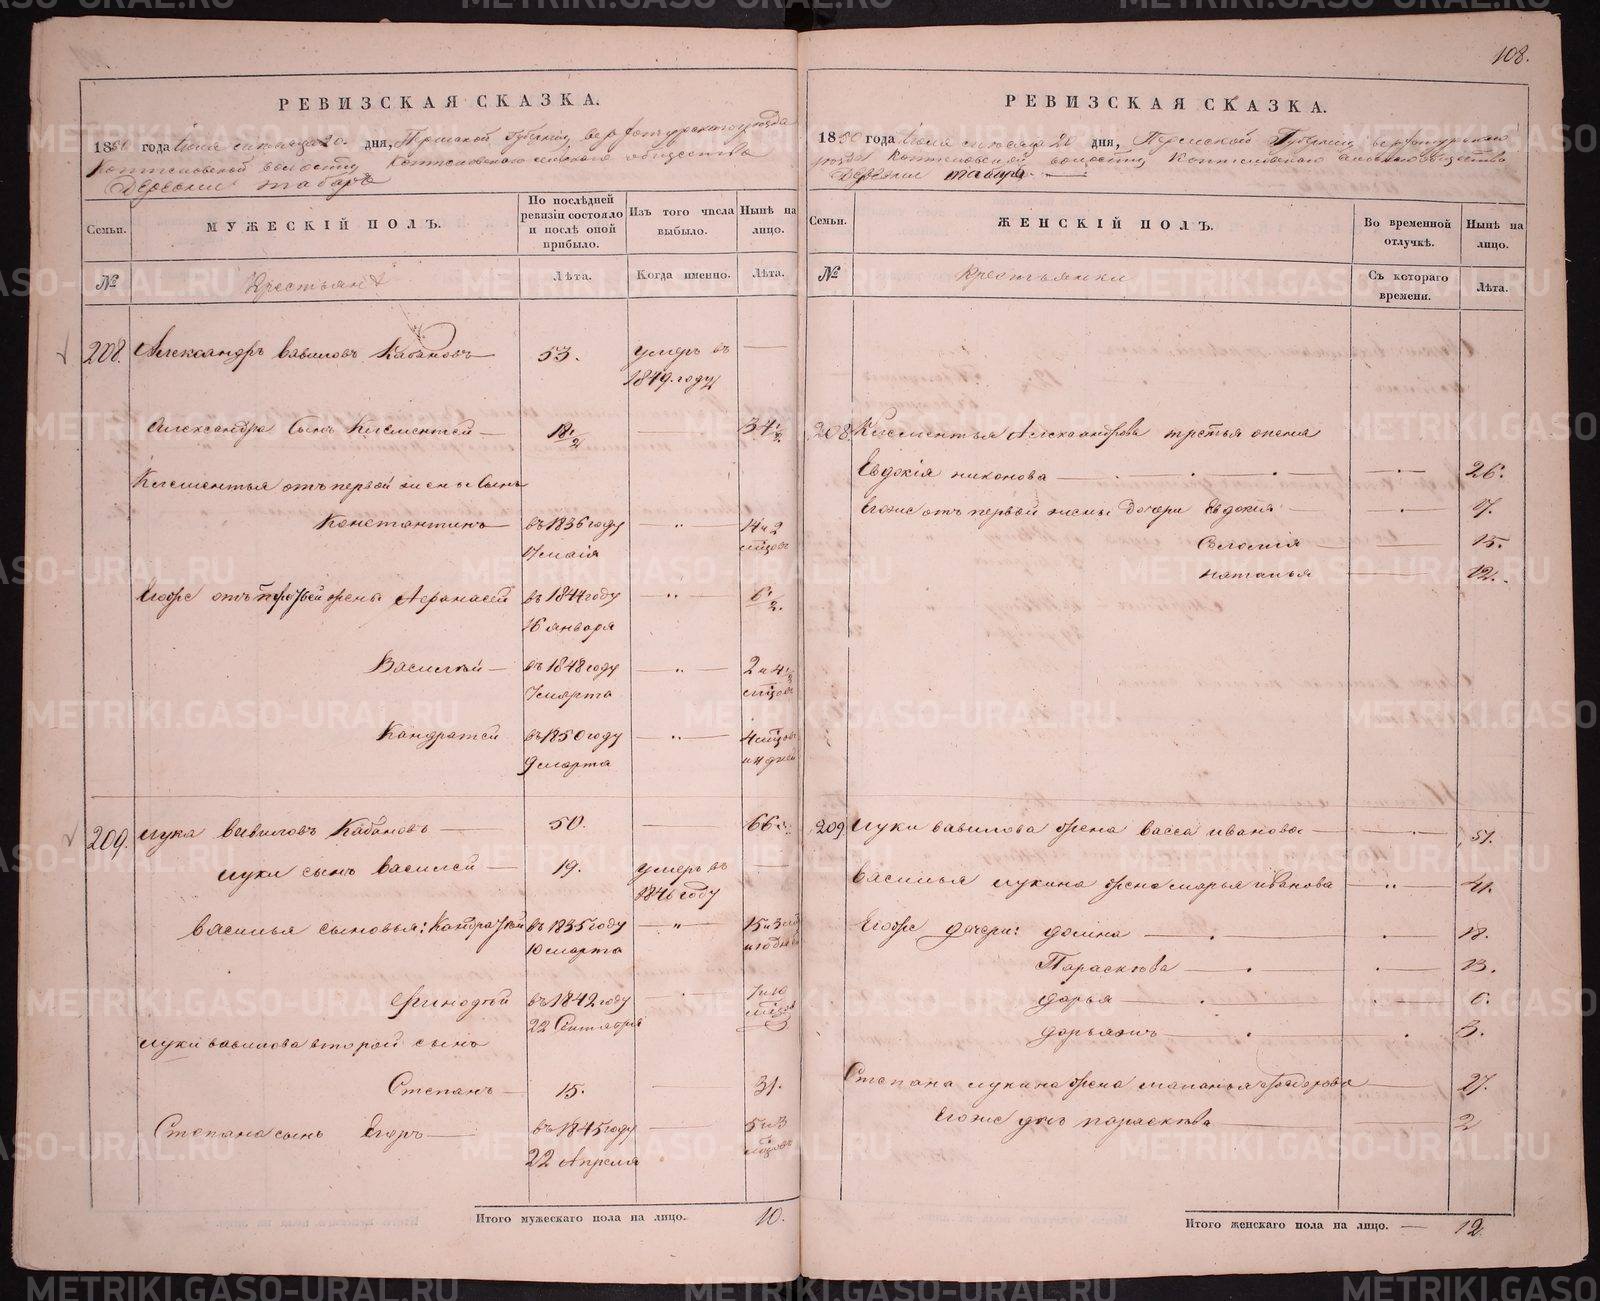 108.
РЕВИЗСКАЯ СКАЗКА.
1850 года Июля месяца 20 дня, Пермской Губернии Верхотурского уезда
Коптеловской волости Коптеловского сельского общества
Деревни Таборъ
Семьи.
МУЖЕСКІЙ ПОЛЪ.
По послѣдней ревизіи состояло и послѣ оной прибыло.
Изъ того числа выбыло.
Нынѣ на лицо.
№
Крестьянѣ
Лѣта.
Когда именно.
Лѣта.
208. Александръ Вавиловъ Кабановъ 53. умеръ въ
1849. году
Александра Сынъ Клементей 18 1/2 34 1/2
Клементья отъ первой жены Сынъ
Константинъ въ 1836 году 14 и 2
17 маія мѣсяц
Егоже отъ третьей жены Афанасей въ 1844 году 6 1/2.
16 января
Василей въ 1848 году 2 и 4
7 марта
Кандратей въ 1850 году 4
9 марта
209. Лука Вавиловъ Кабановъ 50. 66
Луки сынъ Василей 19. умеръ въ
1846 году
Василья сыновья: Кандратей въ 1835 году 15 и 3
10 марта
въ 1842 году 7 и 10
22 Сентября
Луки Вавилова второй сынъ
Степанъ 15. 31.
Степана сынъ Егоръ въ 1845 году 5 и 3
22 Апреля
Итого мужескаго пола на лицо. 10.
РЕВИЗСКАЯ СКАЗКА.
1850 года Июля месяца 20 дня, Пермской Губернии Верхотурского
уезда Коптеловской волости Коптеловского сельского общества
Деревни Табара
Семьи.
ЖЕНСКІЙ ПОЛЪ.
Во временной отлучкѣ.
Нынѣ на лицо.
№
Крестьянки
Съ котораго времени.
Лѣта.
208. Клементья Александрова третья жена
Евдокія Никонова 26.
Егоже отъ первой жены дочери Евдокія 17.
15.
Наталья 12.
209 Луки Вавилова жена Васса Иванова 51.
Василья Лукина жена Марья Иванова 41.
Егоже дочери: Домна 18.
Параскева 13.
Дарья 6.
3.
Степана Лукина жена Маланья Федорова 27.
Егоже дочь Параскева 2
Итого женскаго пола на лицо. 12
METRIKI.GASO-URAL.RU